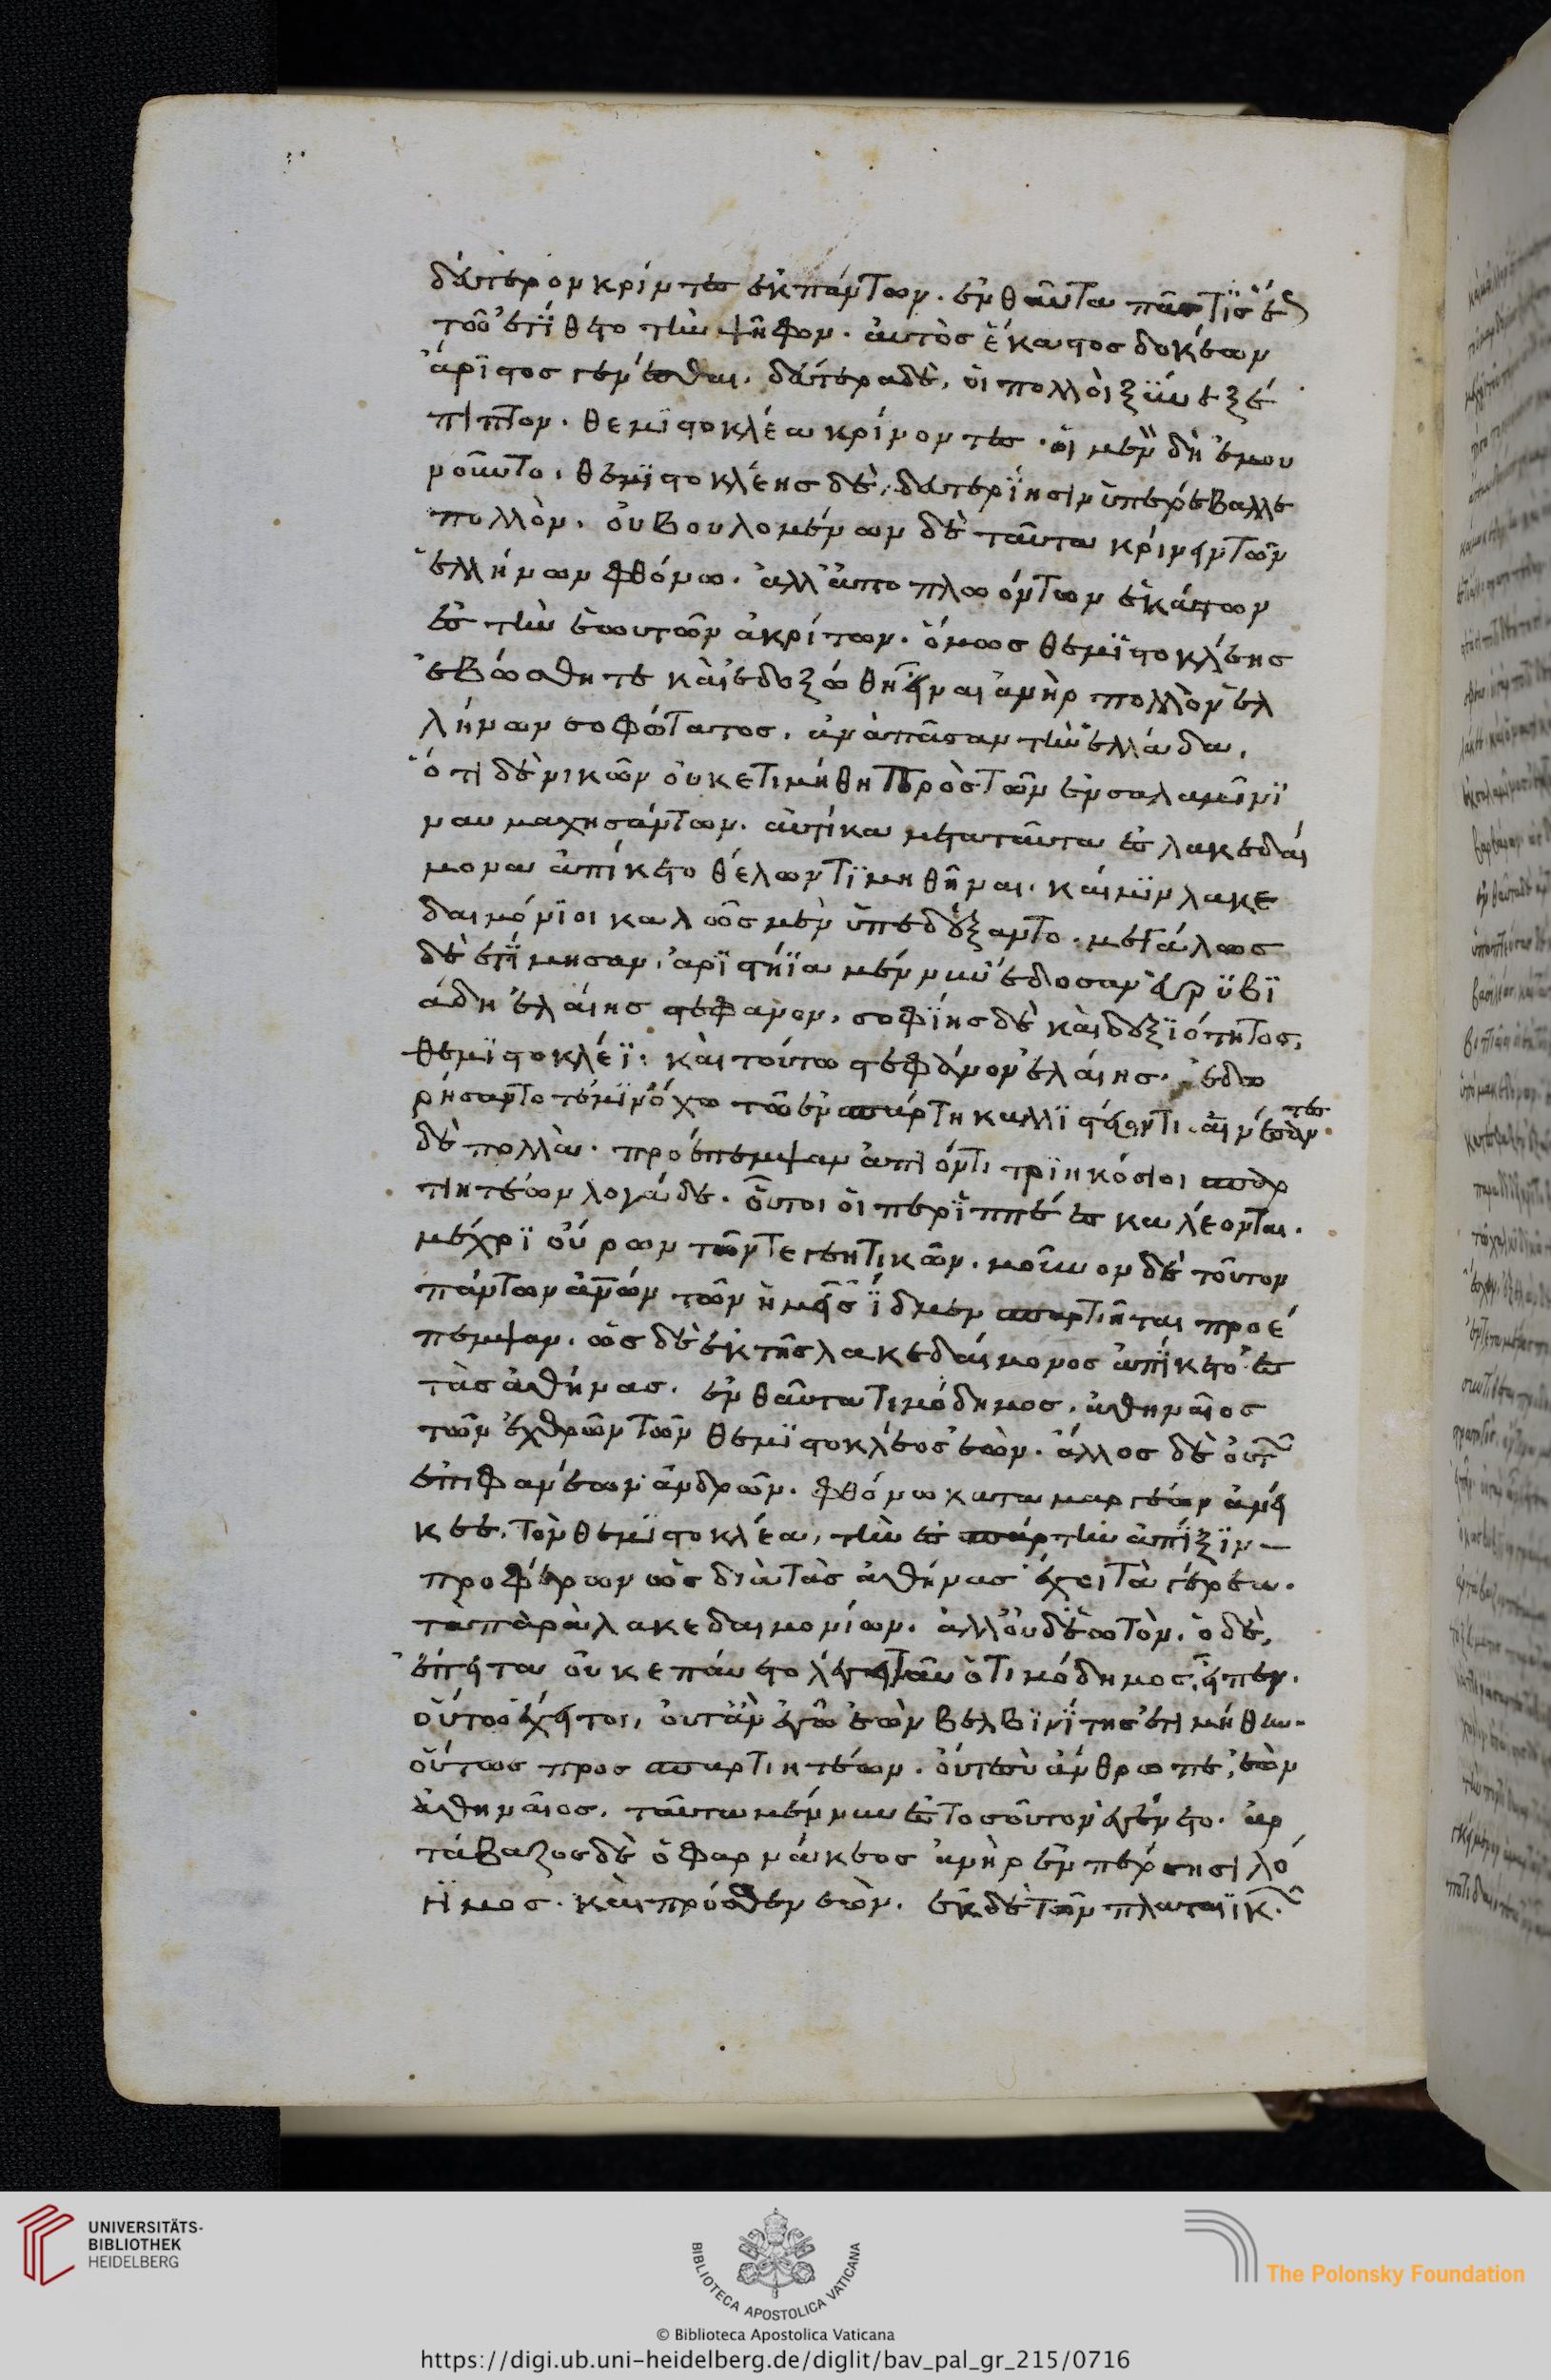 δεύτερον κρίντες ἐκ πάντων. ἐνθαῦτα πᾶς τῒς ἑω
τῶ ἐτΐθετο τὴν ψῆφον. αὐτὸς ἕκαστος δοκέων
ἄρϊστος γενέσθαι. δεύτερα δὲ, οἱ πολλοὶ ξϋνεξέ
πιπτον. θεμϊστοκλέα κρίνοντες. οἱ μὲν δὴ ἐμου
νοῦντο. θεμϊστοκλέης δὲ, δευτερΐησιν ὑπερέβαλλε
πολλὸν. οὐ βουλομένων δὲ ταῦτα κρίνειν τῶν
ἑλλήνων φθόνω. ἀλλ' ἀποπλωόντων ἑκάστων
ἐς τὴν ἑωυτῶν ἀκρίτων. ὅμως θεμϊστοκλέης
ἐβώσθη τε καὶ ἐδοξώθη εἶναι ἀνὴρ πολλὸν ἑλ
λήνων σοφώτατος. ἀνὰ πᾶσαν τὴν ἑλλάδα.
ὅτι δὲ νικῶν οὐκ ἐτιμήθη πρὸς τῶν ἐν σαλαμῖνϊ
ναυμαχησάντων. αὐτίκα μετὰ ταῦτα ἐς λακεδαί
μονα ἀπίκετο θέλων τϊμηθῆναι. καί μϊν λακε
δαιμόνϊοι καλῶς μὲν ὑπεδέξαντο. μεγάλως
δὲ ἐτΐμησαν. ἀρϊστήϊα μέν νυν ἔδοσαν εὐρϋβϊ
άδη ἐλαίης στέφανον. σοφΐης δὲ καὶ δεξϊότητος,
θεμϊστοκλέϊ. καὶ τούτω στέφανον ἐλαίης. ἐδω
ρήσαντο τέ μϊν ὄχω τῶ ἐν σπάρτη καλλϊστέοντι. αἰνέσαντες
δὲ πολλὰ. προέπεμψαν ἀπιόντι τρϊηκόσιοι σπαρ
τιητέων λογάδε. οὗτοι οἵπερ ἱππέες καλέονται.
μέχρϊ οὔρων τῶν τεγεητικῶν. μοῦνον δὲ τοῦτον
πάντων ἀνων τῶν ἡμεῖς ἴδμεν σπαρτιῆται προέ
πεμψαν. ὡς δὲ ἐκ τῆς λακεδαίμονος ἀπίκετο ἐς
τὰς ἀθήνας. ἐνθαῦτα τιμόδημος. ἀθηναῖος
τῶν ἐχθρῶν τῶν θεμϊστοκλέος ἐὼν. ἄλλος δὲ οὐ τῶν
ἐπιφανέων ἀνδρῶν. φθόνω καταμαργέων ἐνεί
κεε. τὸν θεμϊστοκλέα, τὴν ἐς σπάρτην ἄπϊξϊν
προφέρων ὡς διὰ τὰς ἀθήνας ἔχοι τὰ γέρεα.
τα παρὰ λακεδαιμονίων. ἀλλ' οὐ δι' ἑωυτὸν. ὁ δὲ,
ἐπείτα οὐκ ἐπαύετο λέγων ταῦτα ὁ τιμόδημος, εἶπεν.
οὕτω ἔχει τοι, οὔτ' ἂν ἐγὼ ἐὼν βελβϊνΐτης ἐτιμήθην
οὕτως προς σπαρτιητέων. οὔτε σὺ ἄνθρωπε, ἐὼν
ἀθηναῖος. ταῦτα μέν νυν ἐς τοσοῦτον ἐγένετο. ἀρ
τάβαζος δὲ ὁ φαρνάκεος ἀνὴρ ἐν πέρσησι λό
γιμος. καὶ πρόσθεν ἐὼν. ἐκ δὲ τῶν πλαταιϊκῶν
UNIVERSITÄTS-
BIBLIOTHEK
HEIDELBERG
BIBLIOTECA APOSTOLICA VATICANA
The Polonsky Foundation
© Biblioteca Apostolica Vaticana
https://digi.ub.uni-heidelberg.de/diglit/bav_pal_gr_215/0716